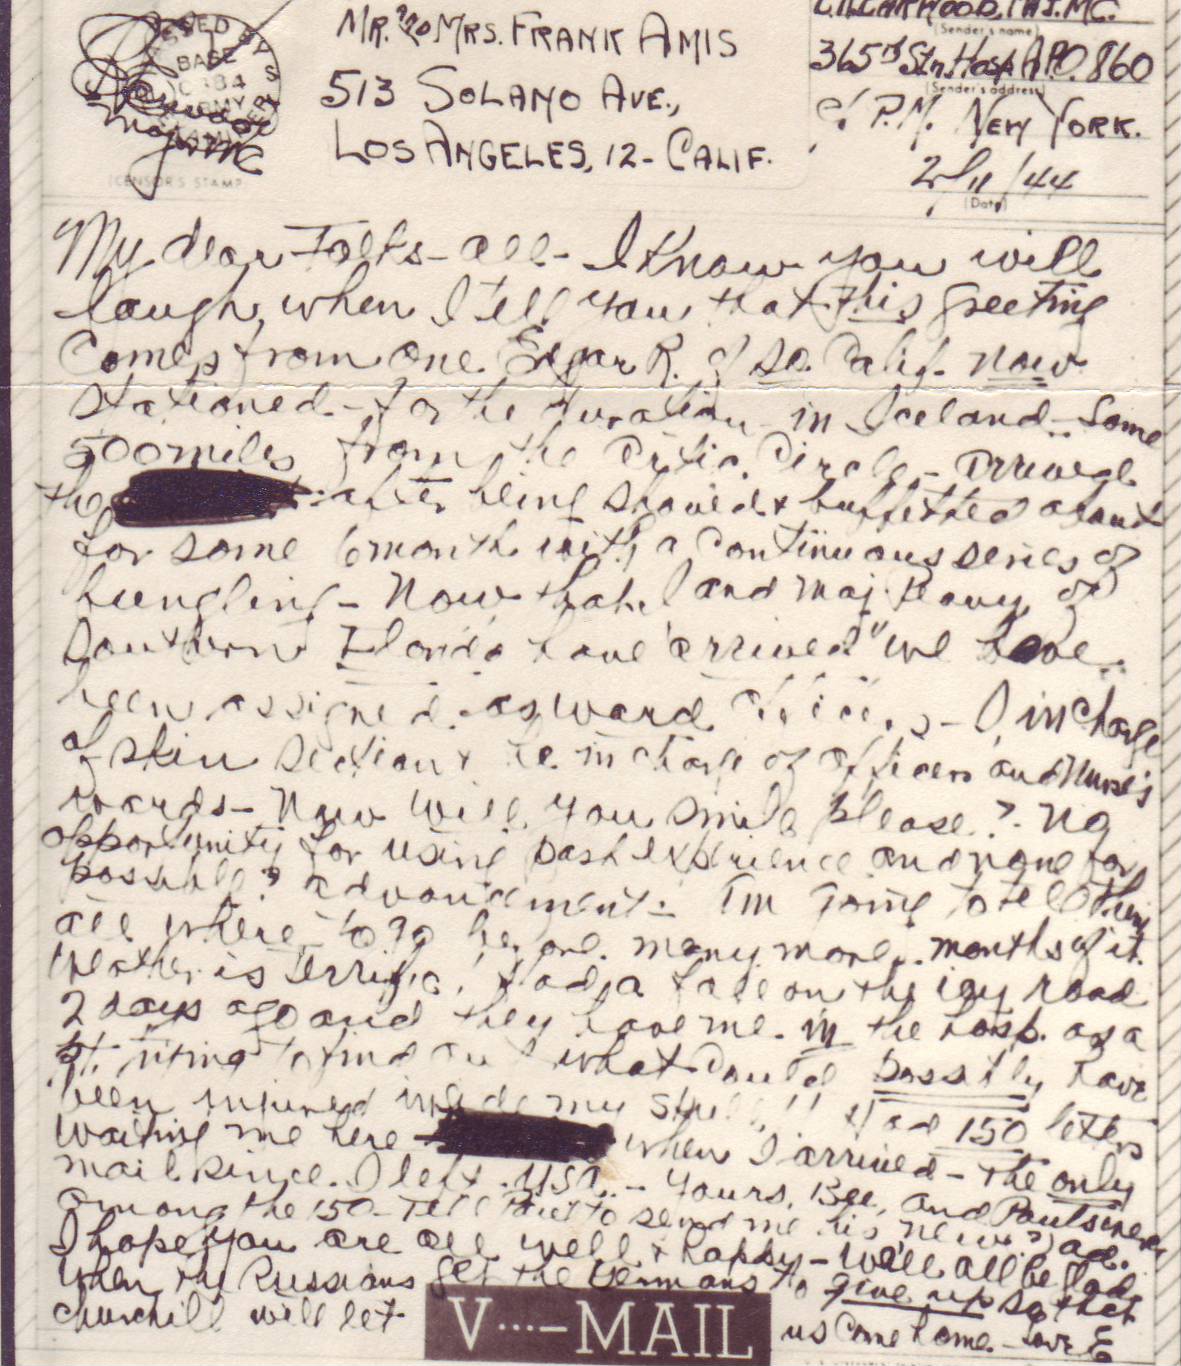 PASSED BY
BASE
ARMY
CENSOR'S STAMP
MR. & MRS. FRANK AMIS
513 SOLANO AVE.,
LOS ANGELES, 12 - CALIF.
(Sender's name)
365th Stn. Hosp. APO. 860
(Sender's address)
c/o P.M. NEW YORK.
2/11/44
(Date)
My dear Folks - all - I know you will
laugh, when I tell you that this greeting
comes from one Edgar R. of So. Calif. now
stationed - for the duration - in Iceland - Some
500 miles from the Artic Circle - Arrived
the after being shoved & buffetted about
for some 6 month with a continuous series of
bungling - Now that I and Maj. of
Southern Florida have "arrived" we have
been assigned as ward officers - I, in charge
of skin section & he in charge of officers and Nurse's
wards - Now will you smile please? No
opportunity for using past experience and none for
possible? advancement - I'm going to tell them
all where to go before many more months of it.
Weather is terrific! Had a fall on the icy road
2 days ago and they have me in the hosp. as a
pt. trying to find out what could possibly have
been injured inside my skull!! Had 150 letters
waiting me here when I arrived - the only
mail since I left USA. - Yours, Bee, and Paul's were
among the 150 - Tell Paul to send me his new add.
I hope you are all well & happy - We'll all be glad
when the Russians get the Germans to give up so that
Churchill will let us come home - Love E
V···- MAIL